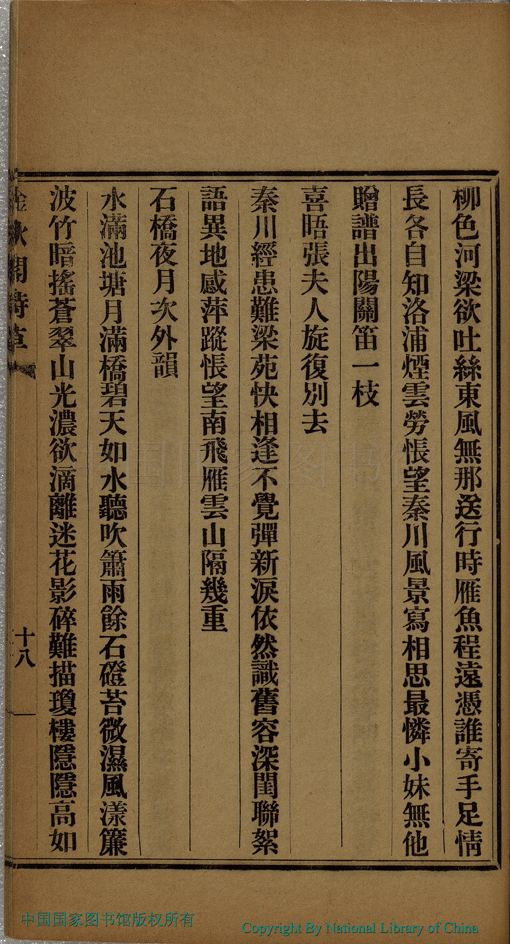 柳色河梁欲吐絲東風無那送行時雁魚程遠憑誰寄手足情
長各自知洛浦煙雲勞悵望秦川風景寫相思最憐小妹無他
贈譜出陽關笛一枝
喜晤張夫人旋復別去
秦川經患難梁苑快相逢不覺彈新淚依然識舊容深閨聯絮
語異地感萍蹤悵望南飛雁雲山隔幾重
石橋夜月次外韻
水滿池塘月滿橋碧天如水聽吹簫雨餘石磴苔微濕風漾簾
波竹暗搖蒼翠山光濃欲滴離迷花影碎難描瓊樓隱隱高如
閣詩草
十八
中国国家图书馆版权所有
Copyright By National Library of China